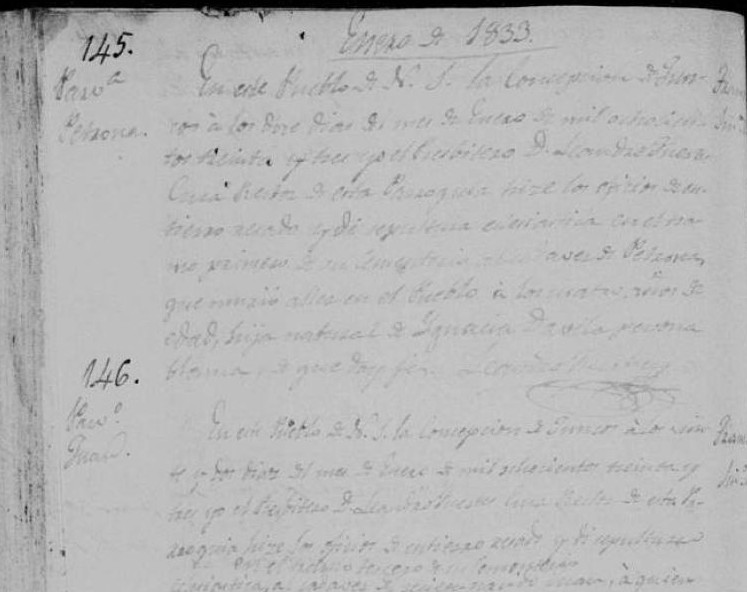 Enero de 1833.
145.
Parv.a
Petrona.
En este Pueblo de N. S. la Concepcion de Jun-
cos à los doze dias del mes de Enero de mil ochocien-
tos treinta y tres yo el Presbitero D. Leandro
Cura Rector de esta Parroquia hize los oficios de en-
tierro rezado y di sepultura eclesiastica en el tra-
mo primero de su Cementerio, al cadaver de Petrona,
que murió en el Pueblo à los quatro años de
edad, hija natural de Ygnacia Davila persona
blanca, de que doy fe. Leandro
146.
Parv.o
Juan.
En este Pueblo de N. S. la Concepcion de Juncos à los vein-
te y dos dias del mes de Enero de mil ochocientos treinta y
tres yo el Presbitero D. Leandro Cura Rector de esta Pa-
rroquia hize los oficios de entierro rezado y di sepultura
en el tramo tercero de su Cementerio
eclesiastica, al cadaver de Juan, à quien